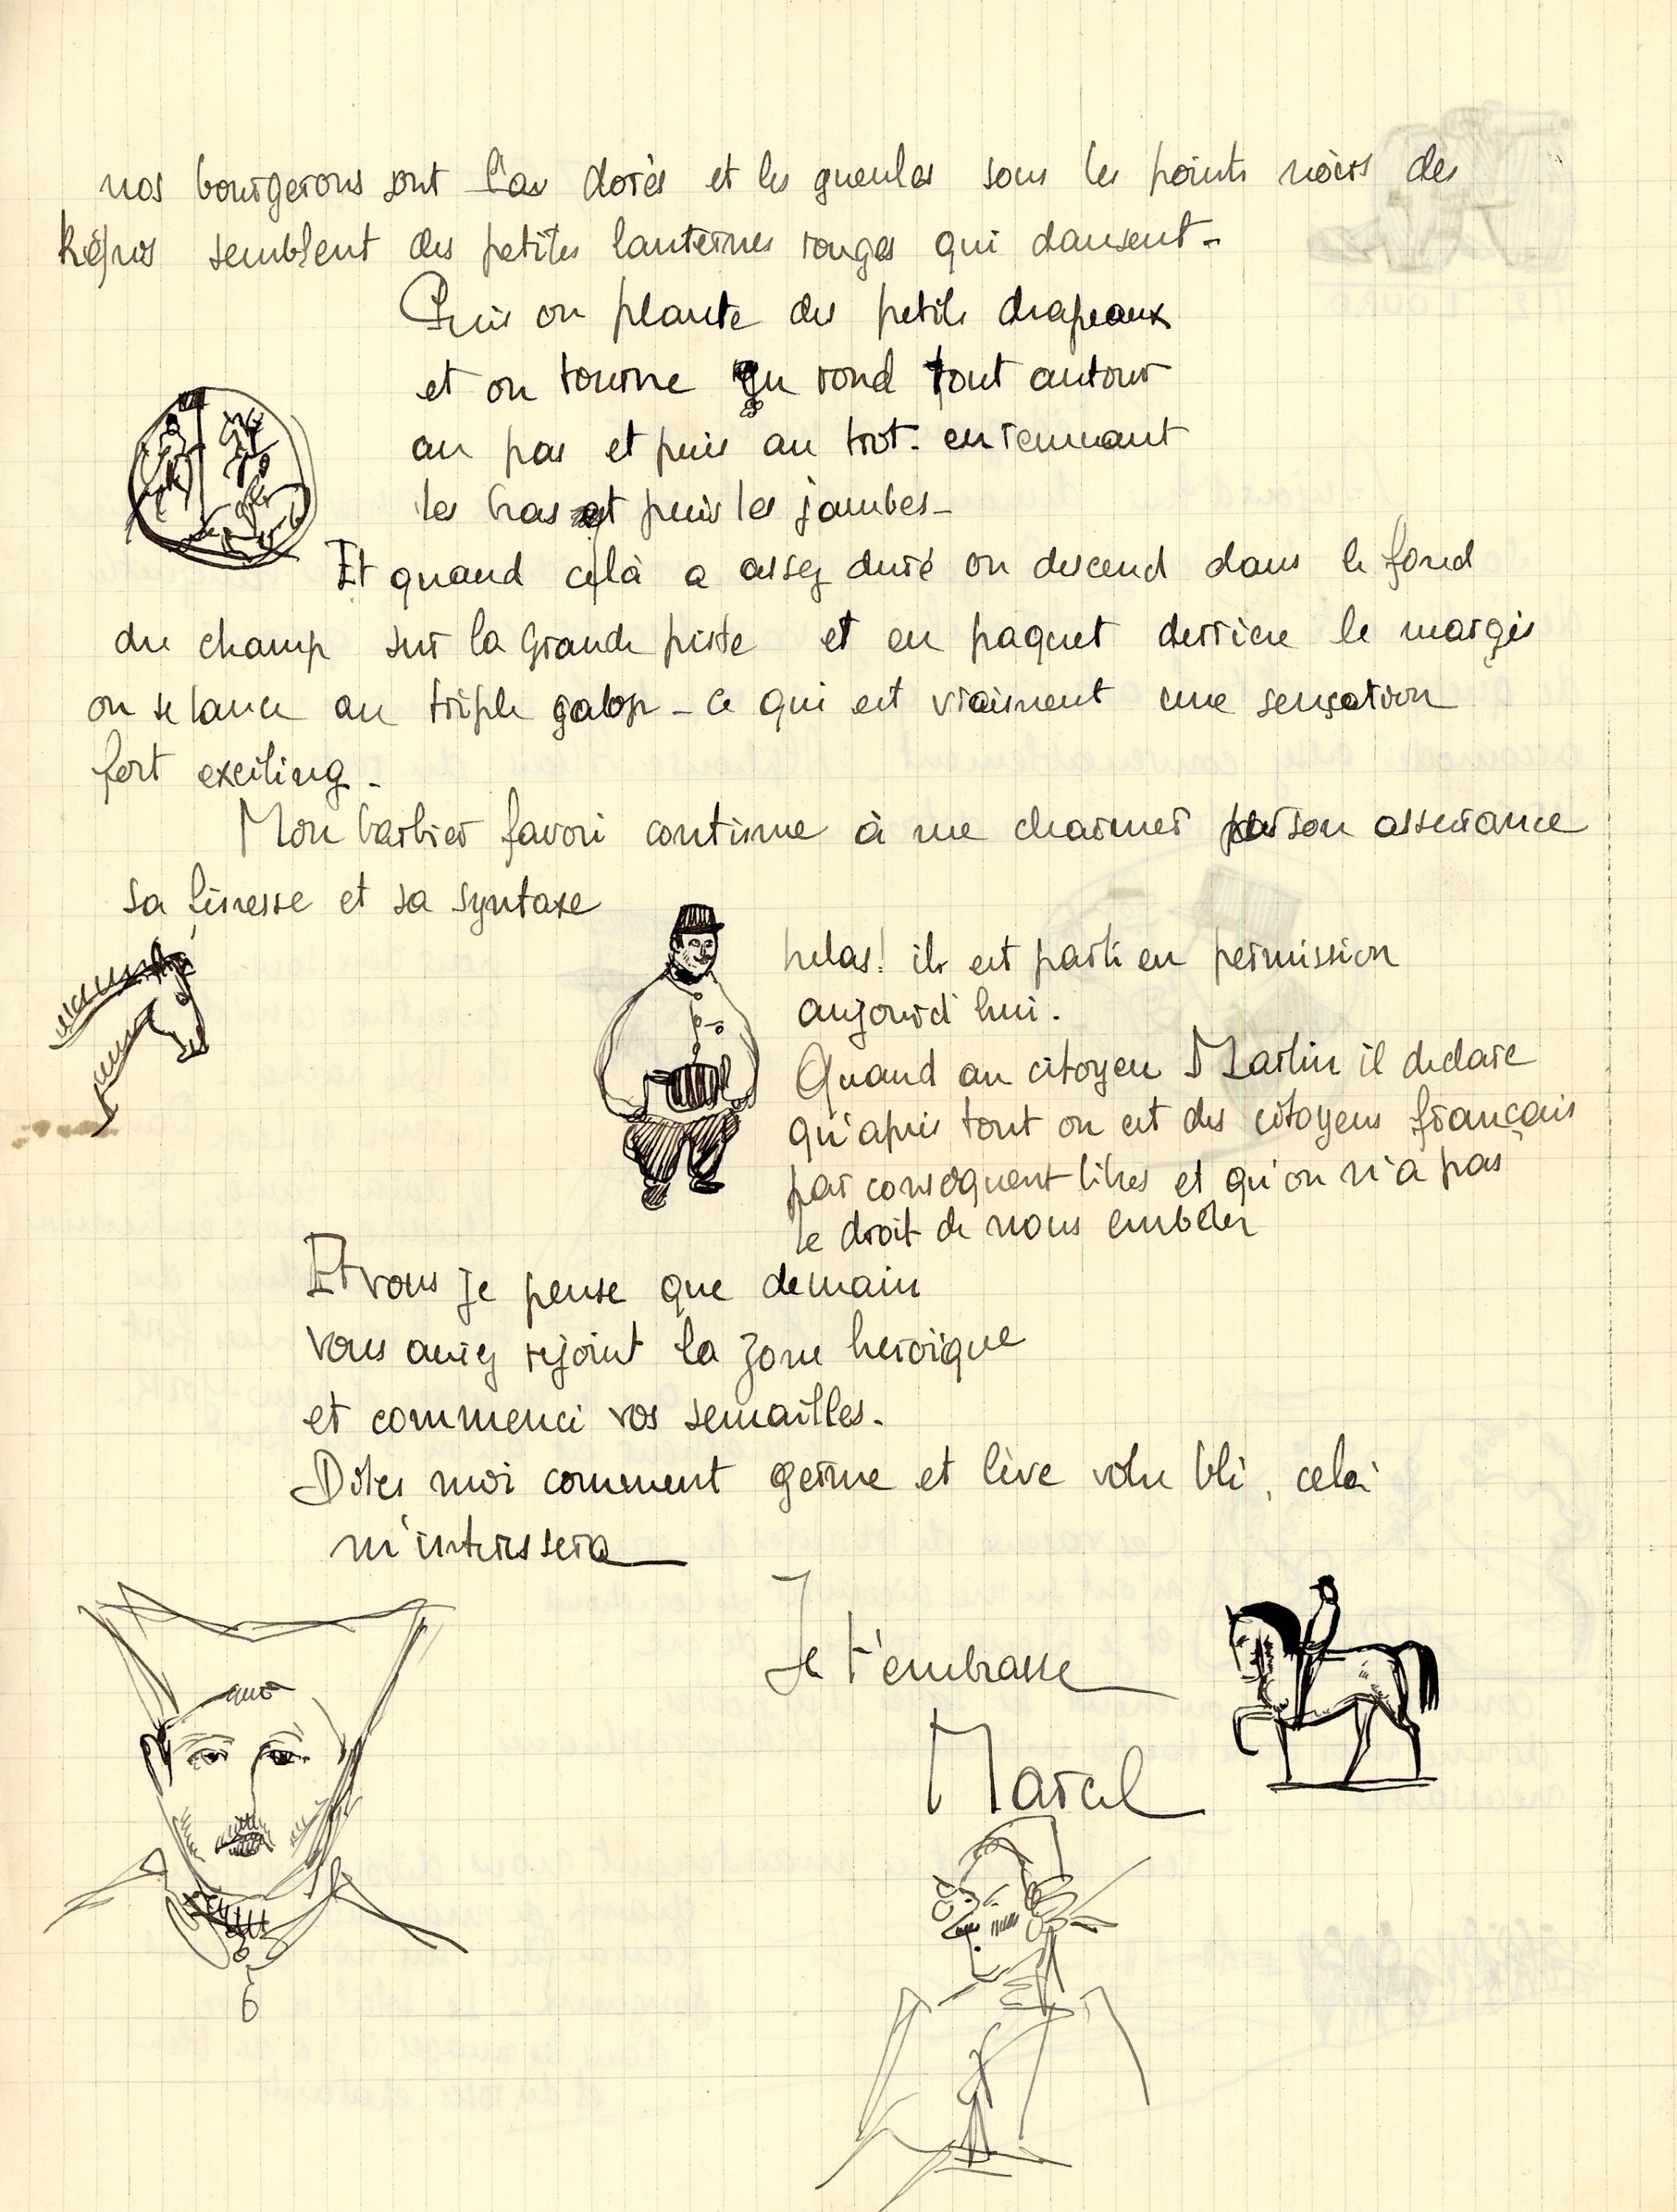 nos bourgerons sont dorés et les gueules sous les points noirs des
képis semblent des petites lanternes rouges qui dansent -
Puis on plante des petits drapeaux
et on tourne en rond tout autour
au pas et puis au trot - en remuant
les bras et puis les jambes -
Et quand celà a assez duré on descend dans le fond
du champ sur la grande piste et en paquet derrière le margis
on se lance au triple galop - ce qui est vraiment une sensation
fort exciting -
Mon barbier favori continue à me charmer par son assurance
sa finesse et sa syntaxe
helas! il est parti en permission
aujourd'hui.
Quand au citoyen Martin il declare
qu'après tout on est des citoyens français
par conséquent libres et qu'on n'a pas
le droit de nous embêter
Et vous je pense que demain
vous aurez rejoint la zone heroïque
et commencé vos semailles.
Dites moi comment germe et lève votre blé, celà
m'interessera
Je t'embrasse
Marcel